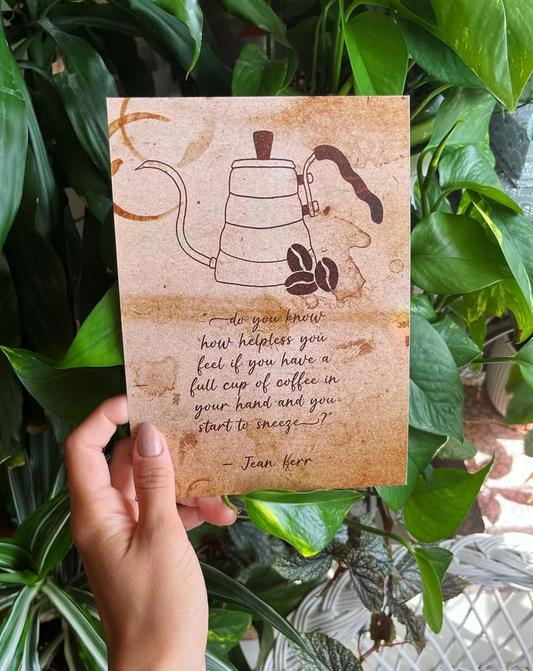 "do you know
how helpless you
feel if you have a
full cup of coffee in
your hand and you
start to sneeze?"
— Jean Kerr